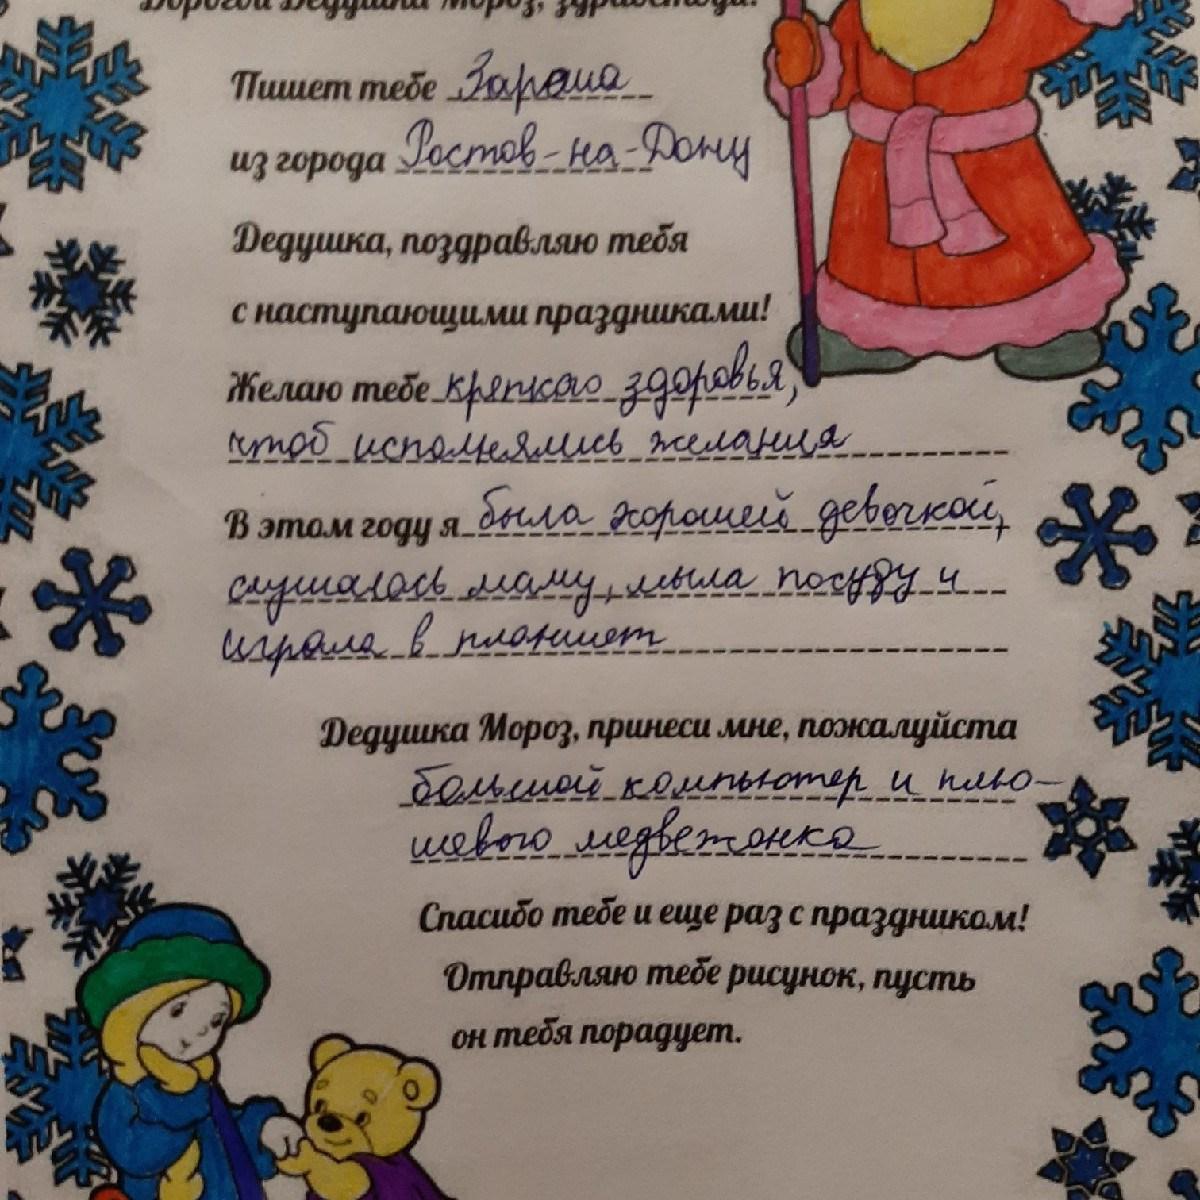 Дорогой Дедушка Мороз, здравствуй!
Пишет тебе Зараша
из города Ростов-на-Дону
Дедушка, поздравляю тебя
с наступающими праздниками!
Желаю тебе крепкого здоровья,
чтоб исполнялись желания
В этом году я была хорошей девочкой,
слушалась маму, мыла посуду и
играла в планшет
Дедушка Мороз, принеси мне, пожалуйста
большой компьютер и плю-
шевого медвежонка
Спасибо тебе и еще раз с праздником!
Отправляю тебе рисунок, пусть
он тебя порадует.